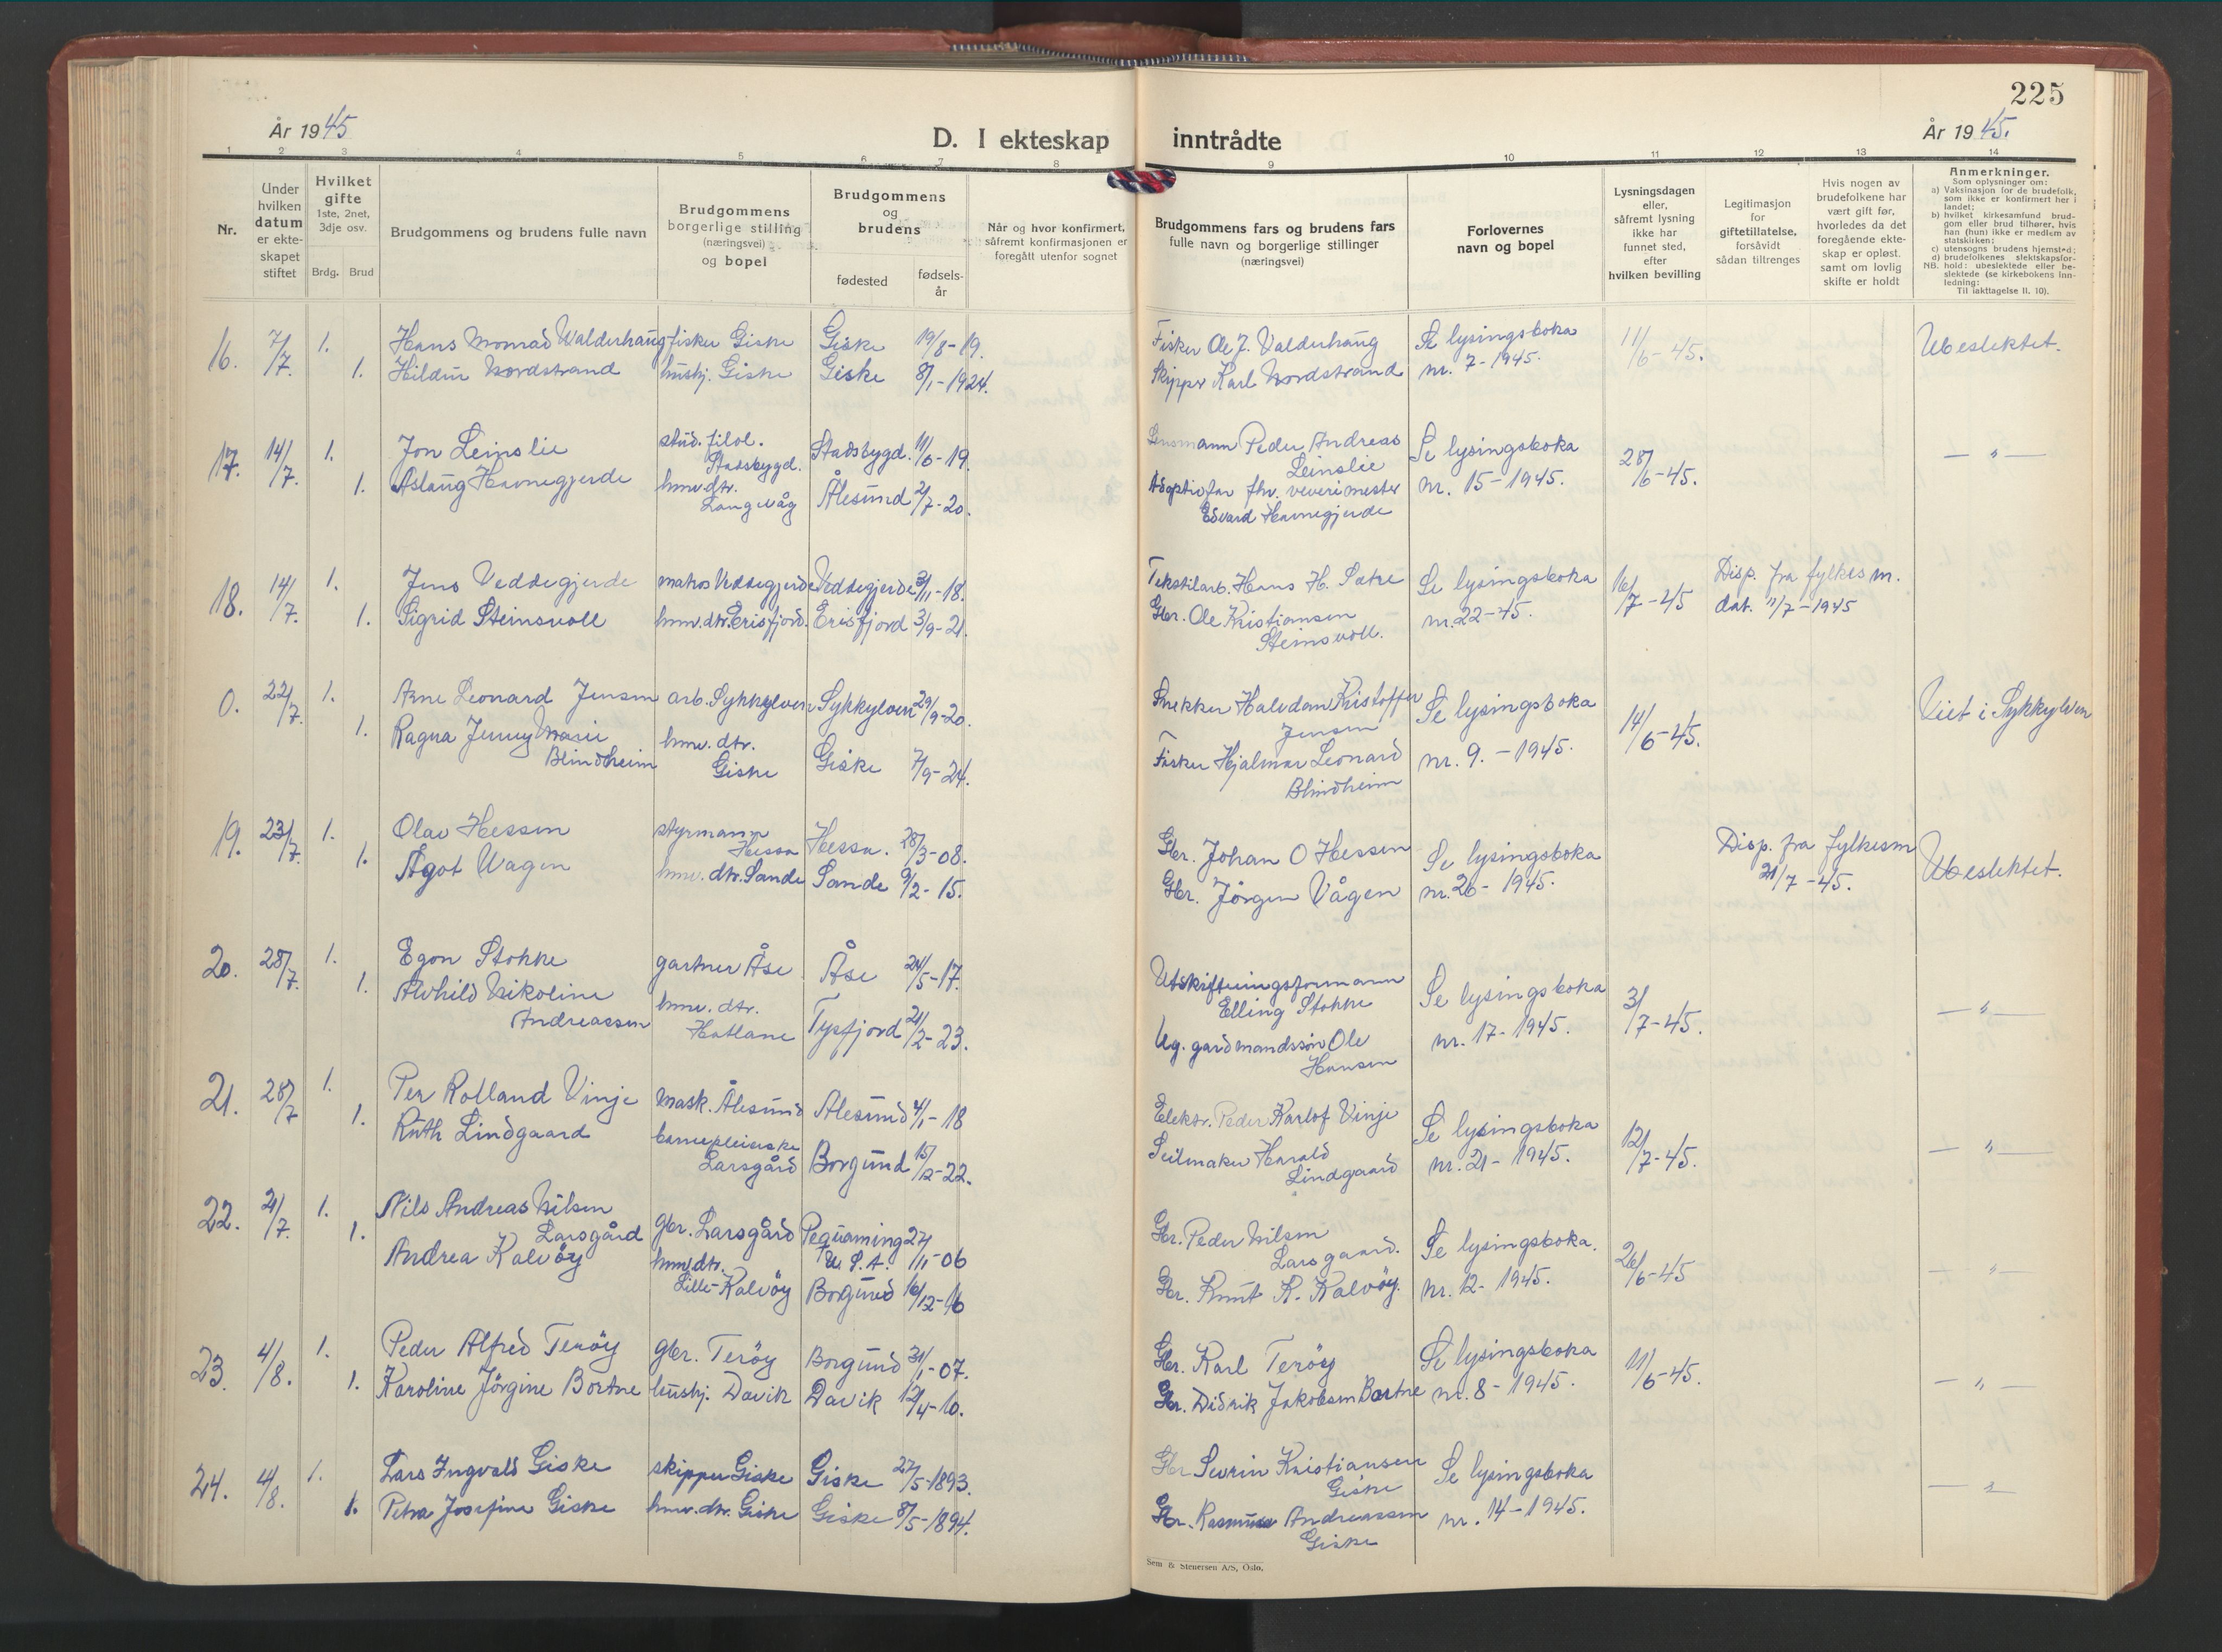 225
År 1945
D. I ekteskap inntrådte
År 1945.
1 2 3 4 5 6 7 8 9 10 11 12 13 14
Nr.
Under hvilken datum er ekteskapet stiftet
Hvilket gifte
1ste, 2net, 3dje osv.
Brdg. Brud
Brudgommens og brudens fulle navn
Brudgommens borgerlige stilling (næringsvei) og bopel
Brudgommens og brudens
fødested
fødselsår
Når og hvor konfirmert, såfremt konfirmasjonen er foregått utenfor sognet
Brudgommens fars og brudens fars fulle navn og borgerlige stillinger (næringsvei)
Forlovernes navn og bopel
Lysningsdagen eller, såfremt lysning ikke har funnet sted, efter hvilken bevilling
Legitimasjon for giftetillatelse, forsåvidt sådan tiltrenges
Hvis nogen av brudefolkene har vært gift før, hvorledes da det foregående ekteskap er opløst, samt om lovlig skifte er holdt
Anmerkninger.
Som oplysninger om:
a) Vaksinasjon for de brudefolk, som ikke er konfirmert her i landet;
b) hvilket kirkesamfund brudgom eller brud tilhører, hvis han (hun) ikke er medlem av statskirken;
c) utensogns brudens hjemsted;
d) brudefolkenes slektskapsforhold: ubeslektede eller beslektede (se kirkebokens innledning:
NB.
Til iakttagelse II, 10).
16. 7/7. 1. Hans Monrad Walderhaug fisker Giske Giske 19/8-19. Fisker Ole J. Valderhaug Se lysingsboka 11/6-45. Ubeslektet.
1. Hildur Nordstrand hushj. Giske Giske 8/1-1924. Skipper Karl Nordstrand nr. 7-1945.
17. 14/7. 1. Jon Leinslie stud. filol. Stadsbygd. Stadsbygd. 11/6-19. Lensmann Peder Andreas Leinslie Se lysingsboka 28/6-45. — " —
1. Aslaug Havnegjerde hmv. dtr. Langevåg Ålesund 2/7-20. Adoptivfar fhv. veverimester Edvard Havnegjerde nr. 15-1945.
18. 14/7. 1. Jens Veddegjerde matros Veddegjerde Veddegjerde 3/1-18. Tekstilarb. Hans H. Sætre Se lysingsboka 16/7-45 Disp. fra fylkesm.
1. Sigrid Steinsvoll hmv. dtr. Erisfjord. Erisfjord 3/9-21. Gbr. Ole Kristiansen Steinsvoll. nr. 22-45. dat. 11/7-1945
0. 22/7. 1. Arne Leonard Jensen arb. Sykkylven Sykkylven 29/9-20. Snekker Halvdan Kristoffer Jensen Se lysingsboka 14/6-45. Viet i Sykkylven
1. Ragna Jenny Marie Blindheim hmv. dtr. Giske Giske 7/9-24. Fisker Hjalmar Leonard Blindheim nr. 9.-1945.
19. 23/7. 1. Olav Hessen styrmann Hessa Hessa. 28/3-08. Gbr. Johan O Hessen Se lysingsboka Disp. fra fylkesm Ubeslektet.
1. Ågot Wagen hmv. dtr. Sande Sande 9/2-15. Gbr. Jörgen Vågen nr. 26-1945. 21/7-45.
20. 28/7. 1. Egon Stokke gartner Åse Åse 24/5-17. Utskiftningsformann Elling Stokke Se lysingsboka 3/7-45. — " —
1. Alvhild Nikoline Andreassen hmv. dtr. Hatlane Tysfjord 21/2-23. Ug. gardmandssön Ole Hansen nr. 17-1945.
21. 28/7 1. Per Rolland Vinje mask. Ålesund Ålesund 4/1-18 Elektr. Peder Karlof Vinje Se lysingsboka 12/7-45. — " —
1. Ruth Lindgaard barnepleierske Larsgård Borgund 15/2-22. Seilmaker Harald Lindgaard nr. 21-1945.
22. 21/7. 1. Nils Andreas Nilsen Larsgård gbr. Larsgård Pequaming U. S. A. 27/11-06 Gbr. Peder Nilsen Larsgaard. Se lysingsboka. 26/6-45 — " —
1. Andrea Kalvöy hmv. dtr. Lille-Kalvöy Borgund 16/12-16 Gbr. Knut K. Kalvöy. nr. 12-1945.
23. 4/8. 1. Peder Alfred Teröy gbr. Teröy Borgund 31/1-07. Gbr. Karl Teröy Se lysingsboka 11/6-45. — " —
1. Karoline Jörgine Bortne hushj. Davik Davik 12/4-10. Gbr. Didrik Jakobsen Bortne nr. 8-1945.
24. 4/8. 1. Lars Ingvald Giske skipper Giske Giske 27/5-1893. Gbr Severin Kristiansen Giske Se lysingsboka — " —
1. Petra Josefine Giske hmv. dtr. Giske Giske 8/5-1894. Gbr. Rasmus Andreassen Giske nr. 14-1945.
Sem & Stenersen A/S, Oslo.